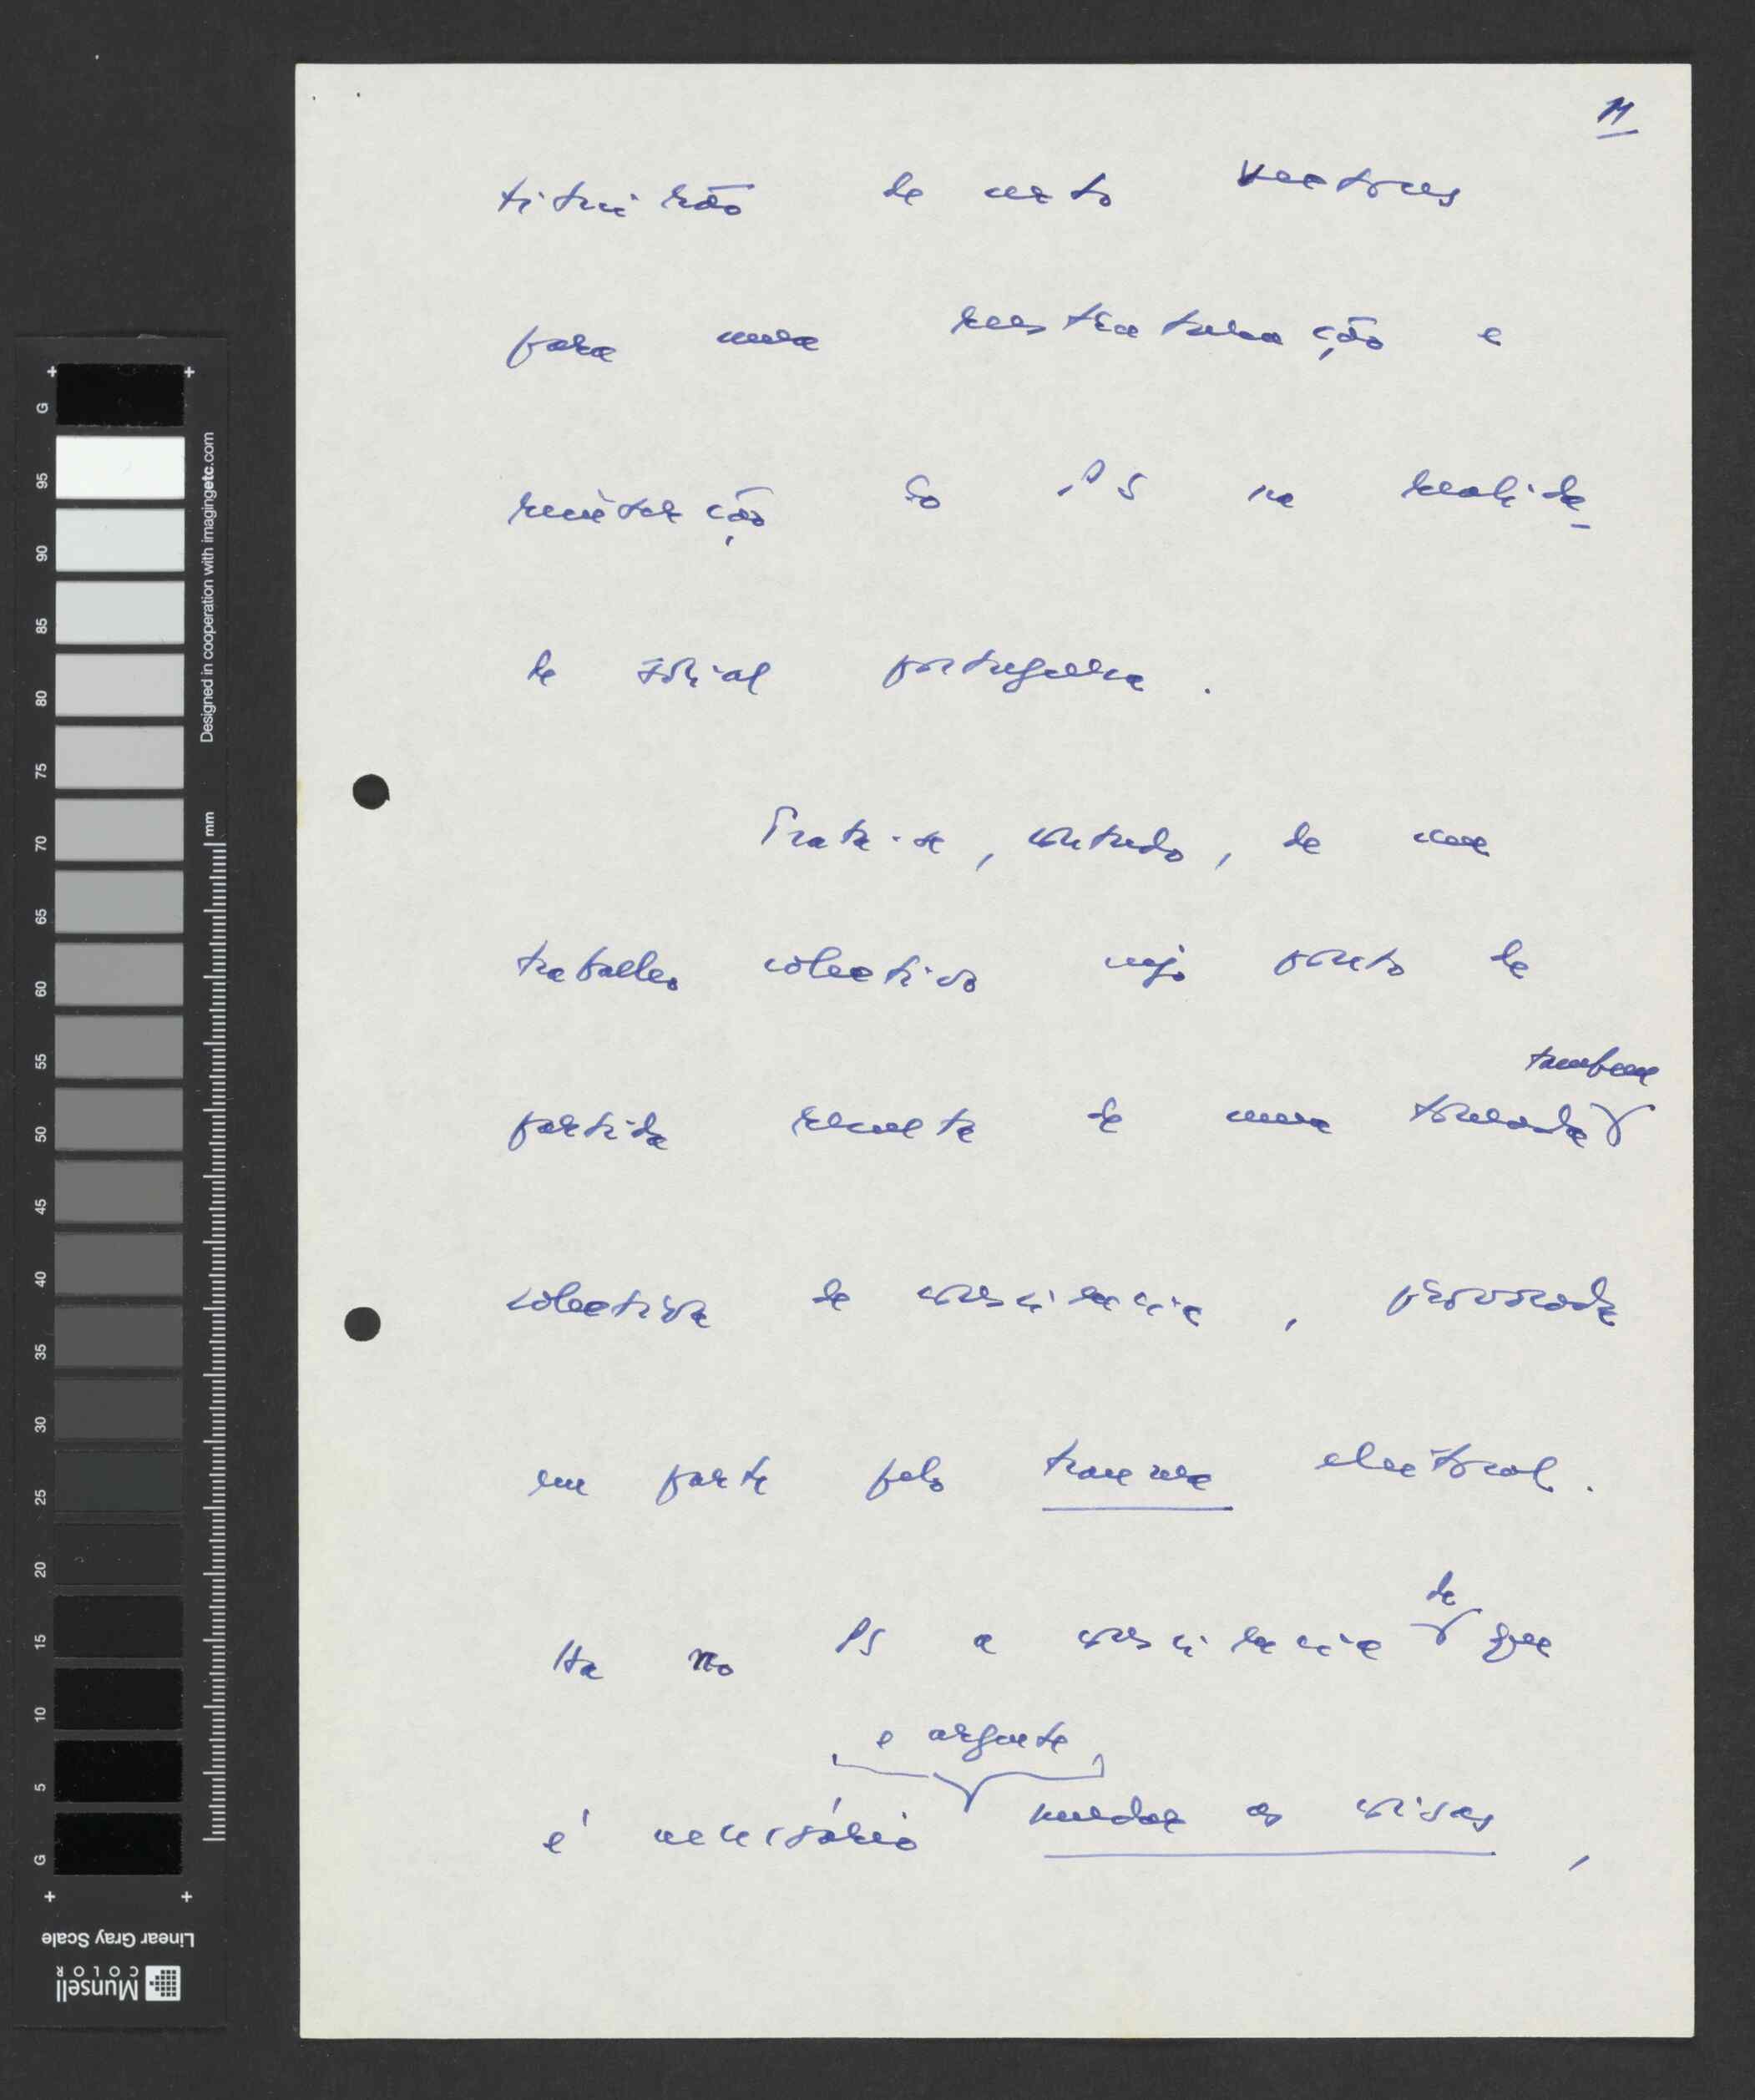 11
tituirão de certo vectores
para uma reestruturação e
reinserção do PS na realida-
de social portuguesa.
Trata-se, contudo, de um
trabalho colectivo cujo ponto de
também
partida resulta de uma tomada
colectiva de consciência, provocada
em parte pelo trauma eleitoral.
de
Há no PS a consciência que
e urgente
é necessário mudar as coisas,
G 95 90 85 80 75 70 65 60 55 50 45 40 35 30 25 20 15 10 5 G
Designed in cooperation with imagingetc.com
mm
Linear Gray Scale
Munsell
COLOR